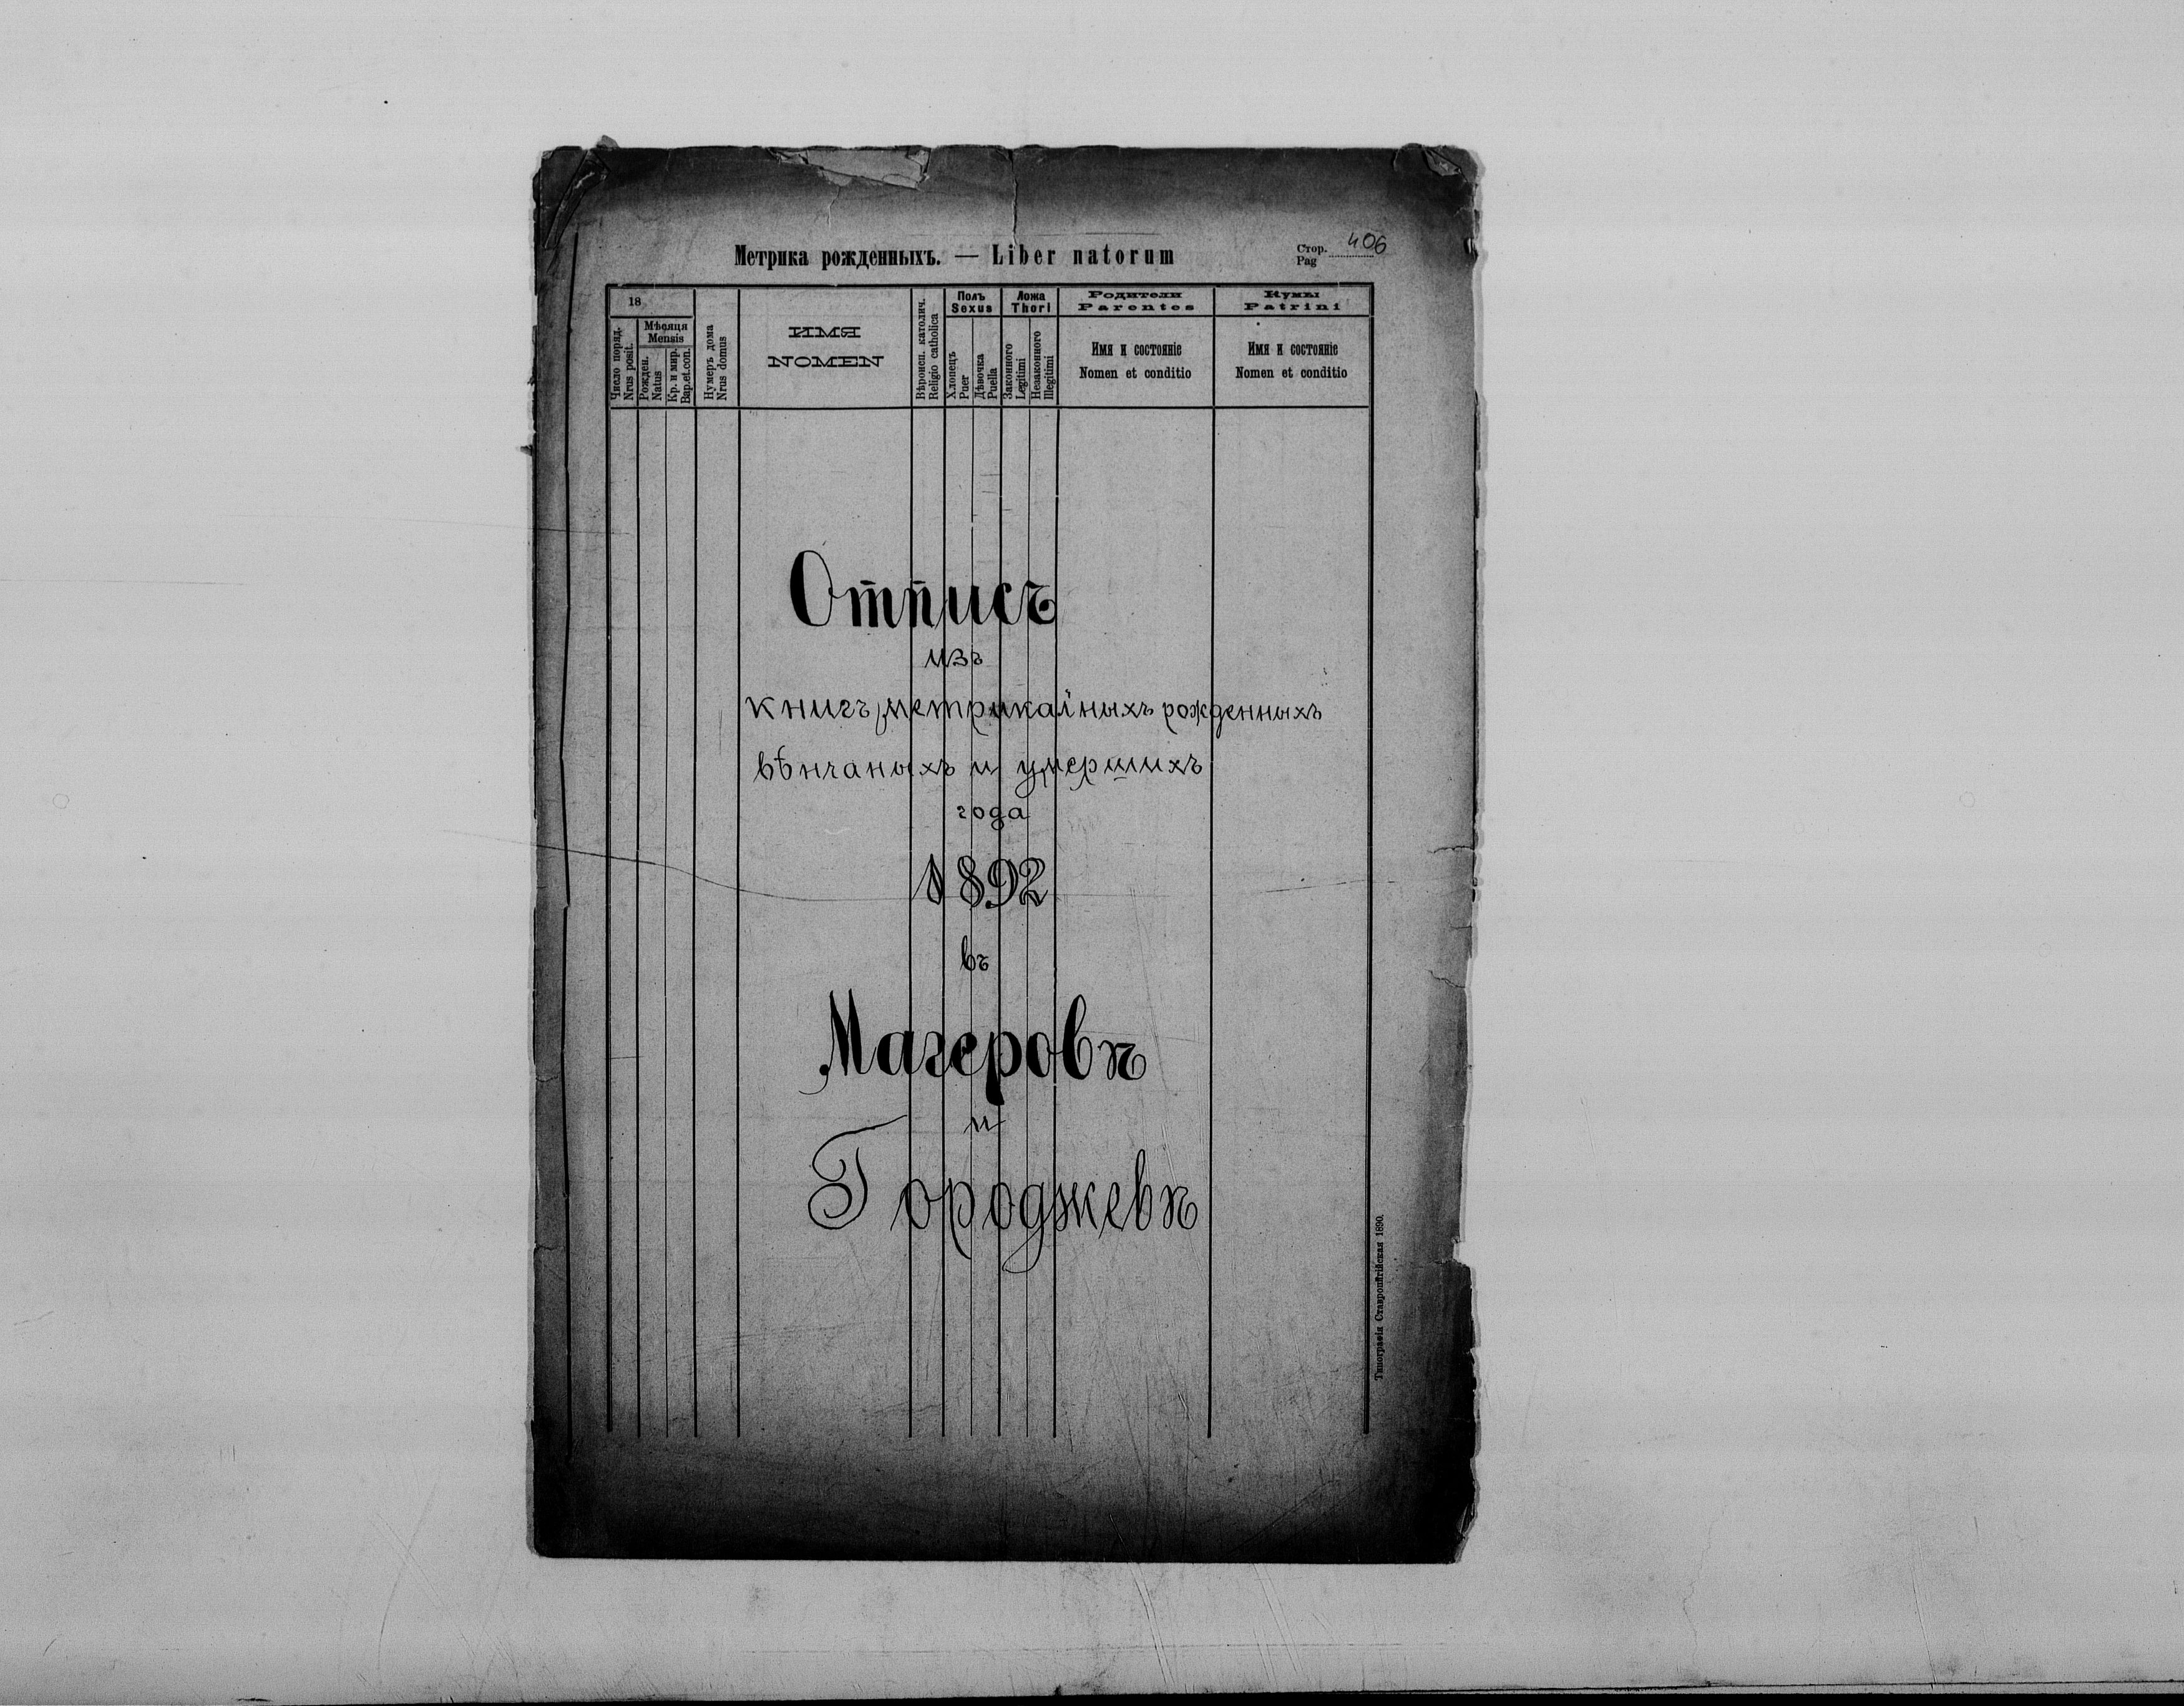 Метрика рожденныхъ. — Liber natorum
Стор. 406
Pag
18
Число поряд.
Nrus posit.
Мѣсяця
Mensis
Рожден.
Natus
Кр. и мир.
Bap.et.con.
Нумеръ дома
Nrus domus
ИМЯ
NOMEN
Вѣроисп. католич.
Religio catholica
Полъ
Sexus
Хлопецъ
Puer
Дѣвочка
Puella
Ложа
Thori
Законного
Legitimi
Незаконного
Illegitimi
Родители
Parentes
Имя и состояніе
Nomen et conditio
Кумы
Patrini
Имя и состояніе
Nomen et conditio
Отписъ
изъ
книгъ метрикальныхъ рожденныхъ
вѣнчаныхъ и умершихъ
года
1892
въ
Магеровѣ
и
Городжевѣ
Типографія Ставропигійская 1890.